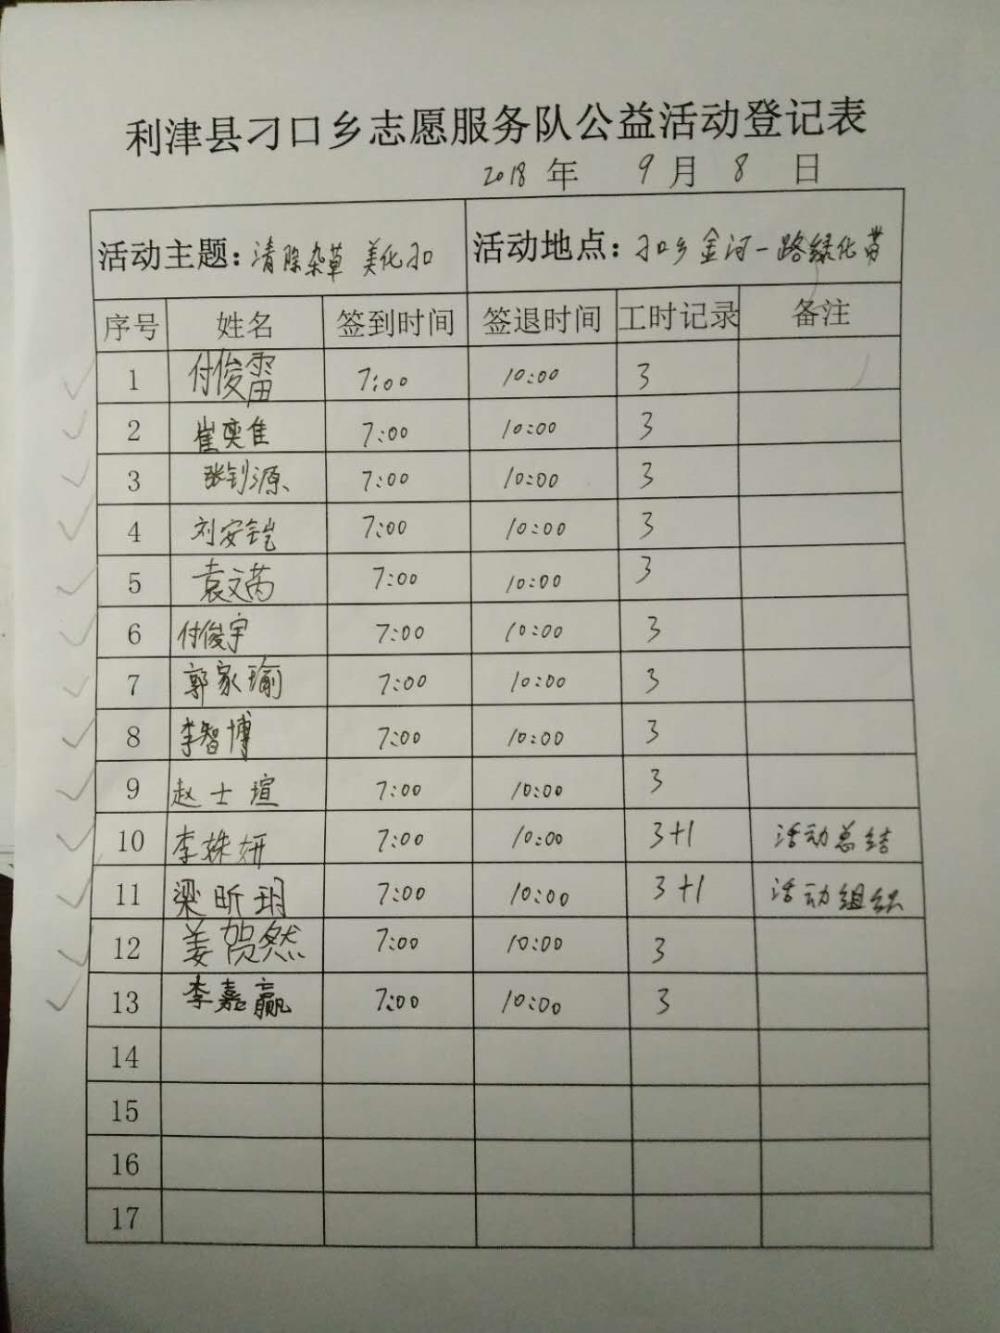 利津县刁口乡志愿服务队公益活动登记表
2018 年 9 月 8 日
活动主题：清除杂草 美化刁口 活动地点：刁口乡 金河一路绿化带
序号 姓名 签到时间 签退时间 工时记录 备注
1 付俊雷 7:00 10:00 3
2 崔奕佳 7:00 10:00 3
3 张钊源 7:00 10:00 3
4 刘安铠 7:00 10:00 3
5 袁文芮 7:00 10:00 3
6 付俊宇 7:00 10:00 3
7 郭家瑜 7:00 10:00 3
8 李智博 7:00 10:00 3
9 赵士瑄 7:00 10:00 3
10 李姝妍 7:00 10:00 3+1 活动总结
11 梁昕玥 7:00 10:00 3+1 活动组织
12 姜贺然 7:00 10:00 3
13 李嘉赢 7:00 10:00 3
14
15
16
17